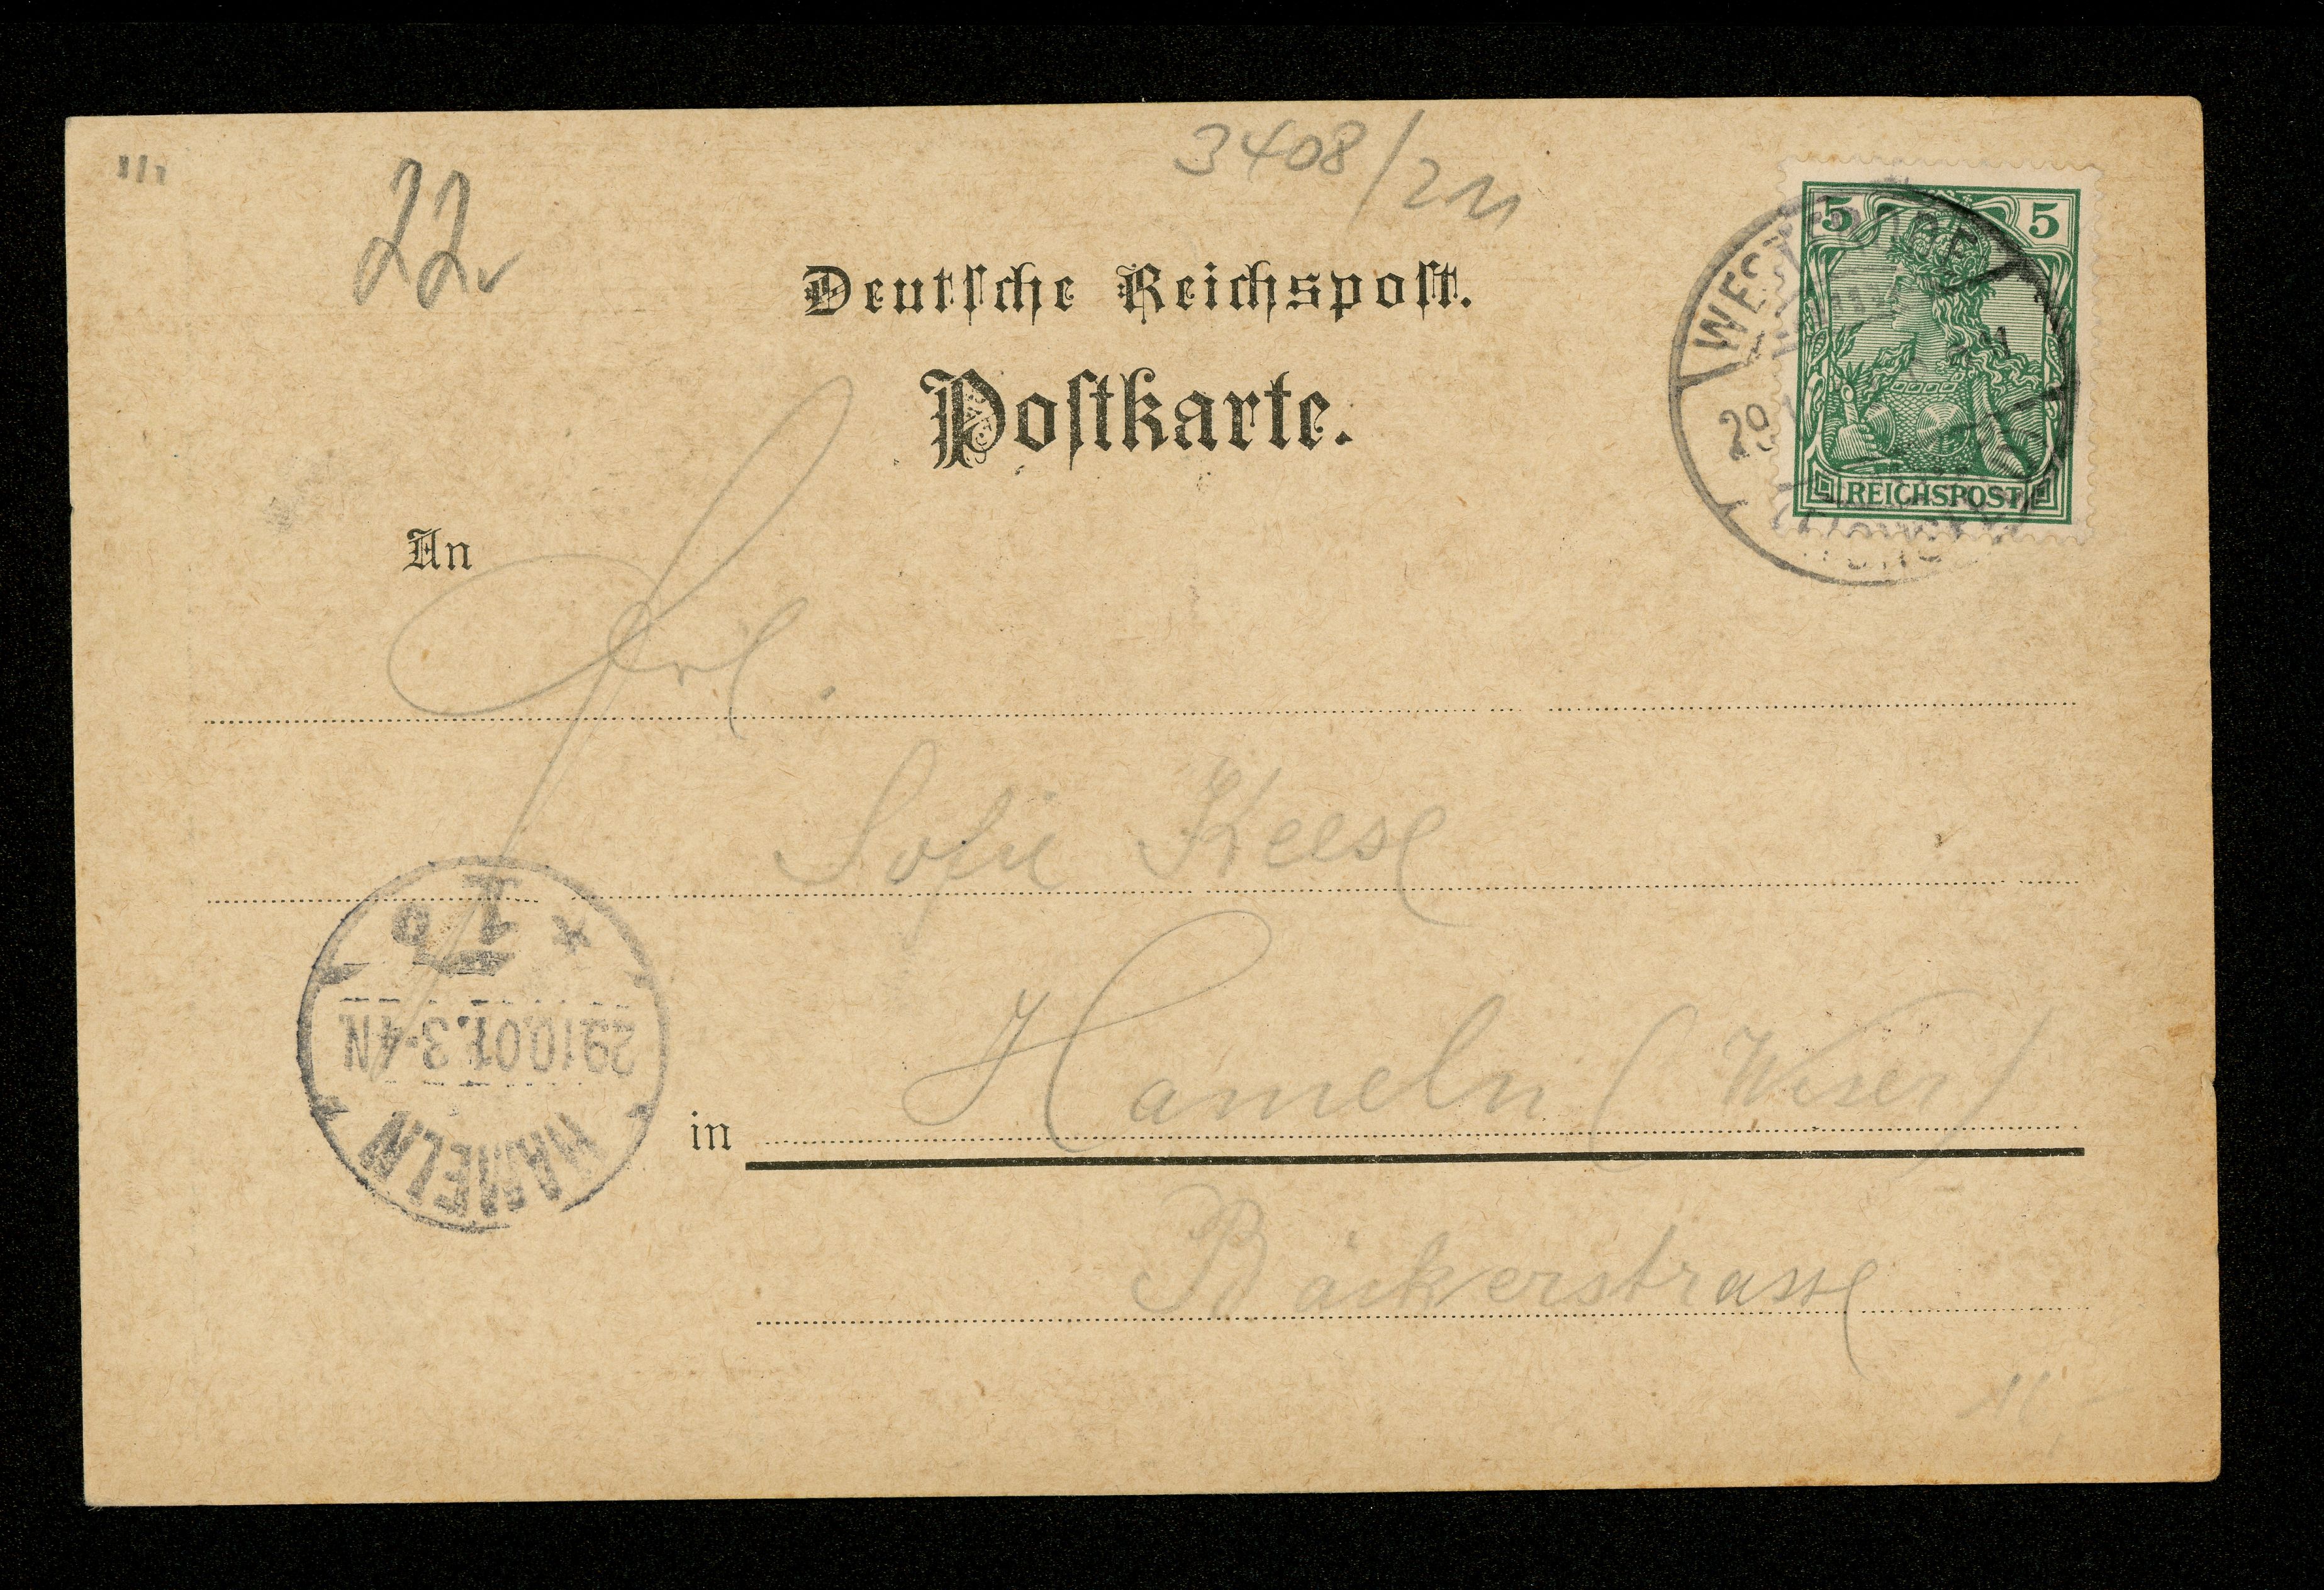 22
3408/211
Deutsche Reichspost.
Postkarte.
5 5
REICHSPOST
29
An
Frl.
Sofie Keese
in Hameln (Weser)
Bäckerstrasse
* 1 b
29.10.01.3-4N.
HAMELN